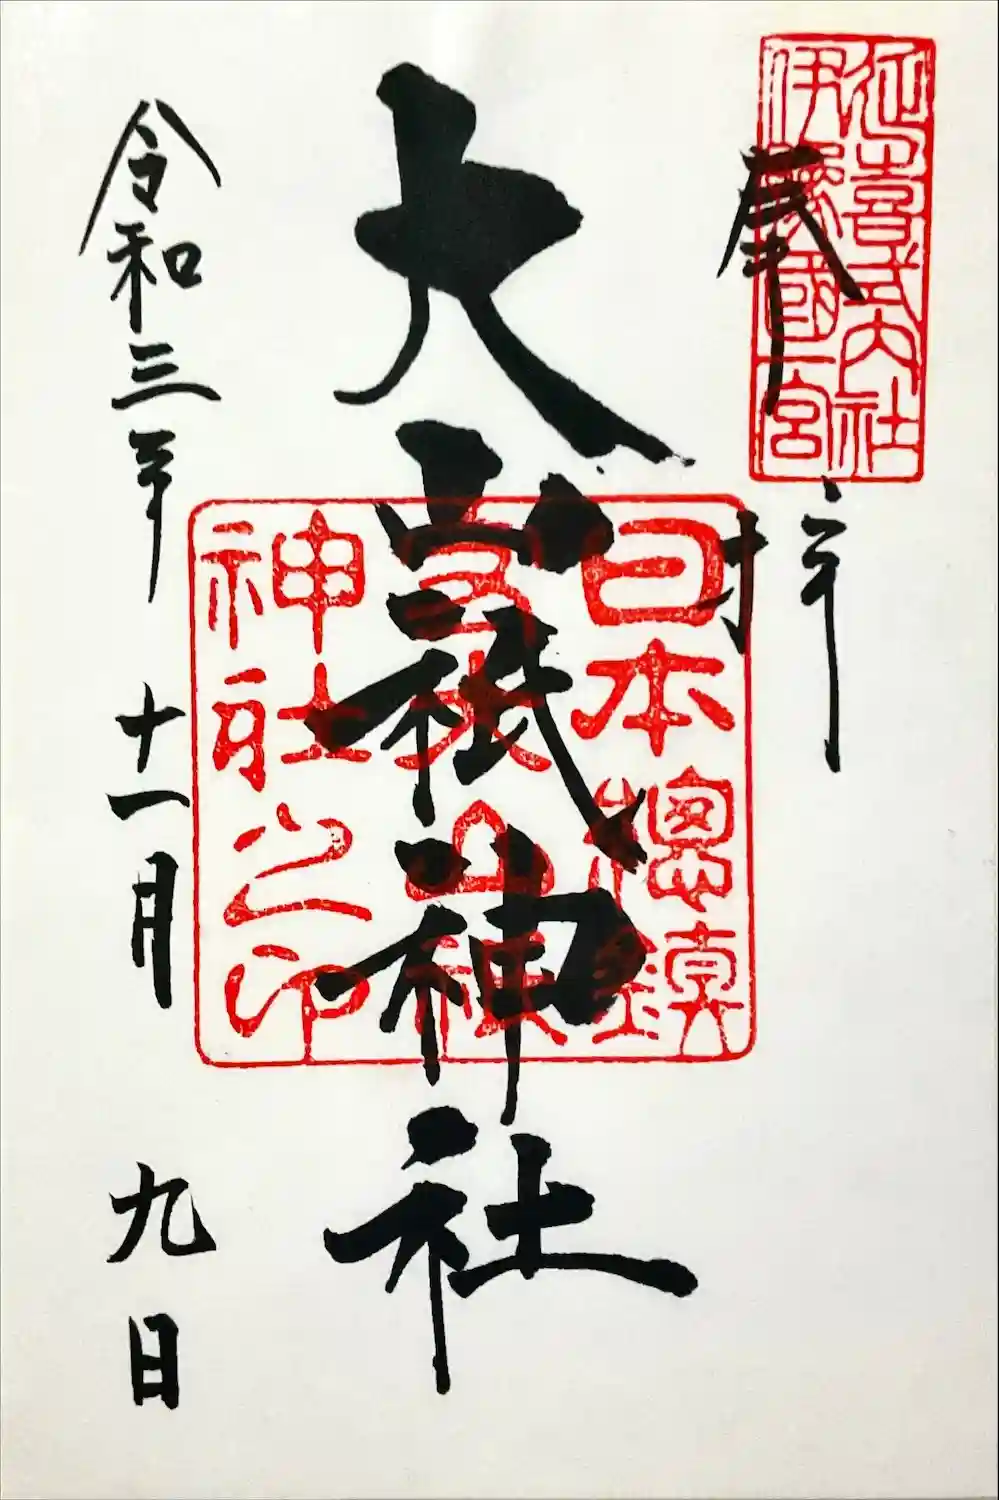 延喜式内社
伊豫國一宮
奉拝
大山祇神社
日本總鎮
守大山積
神社之印
令和三年十一月九日